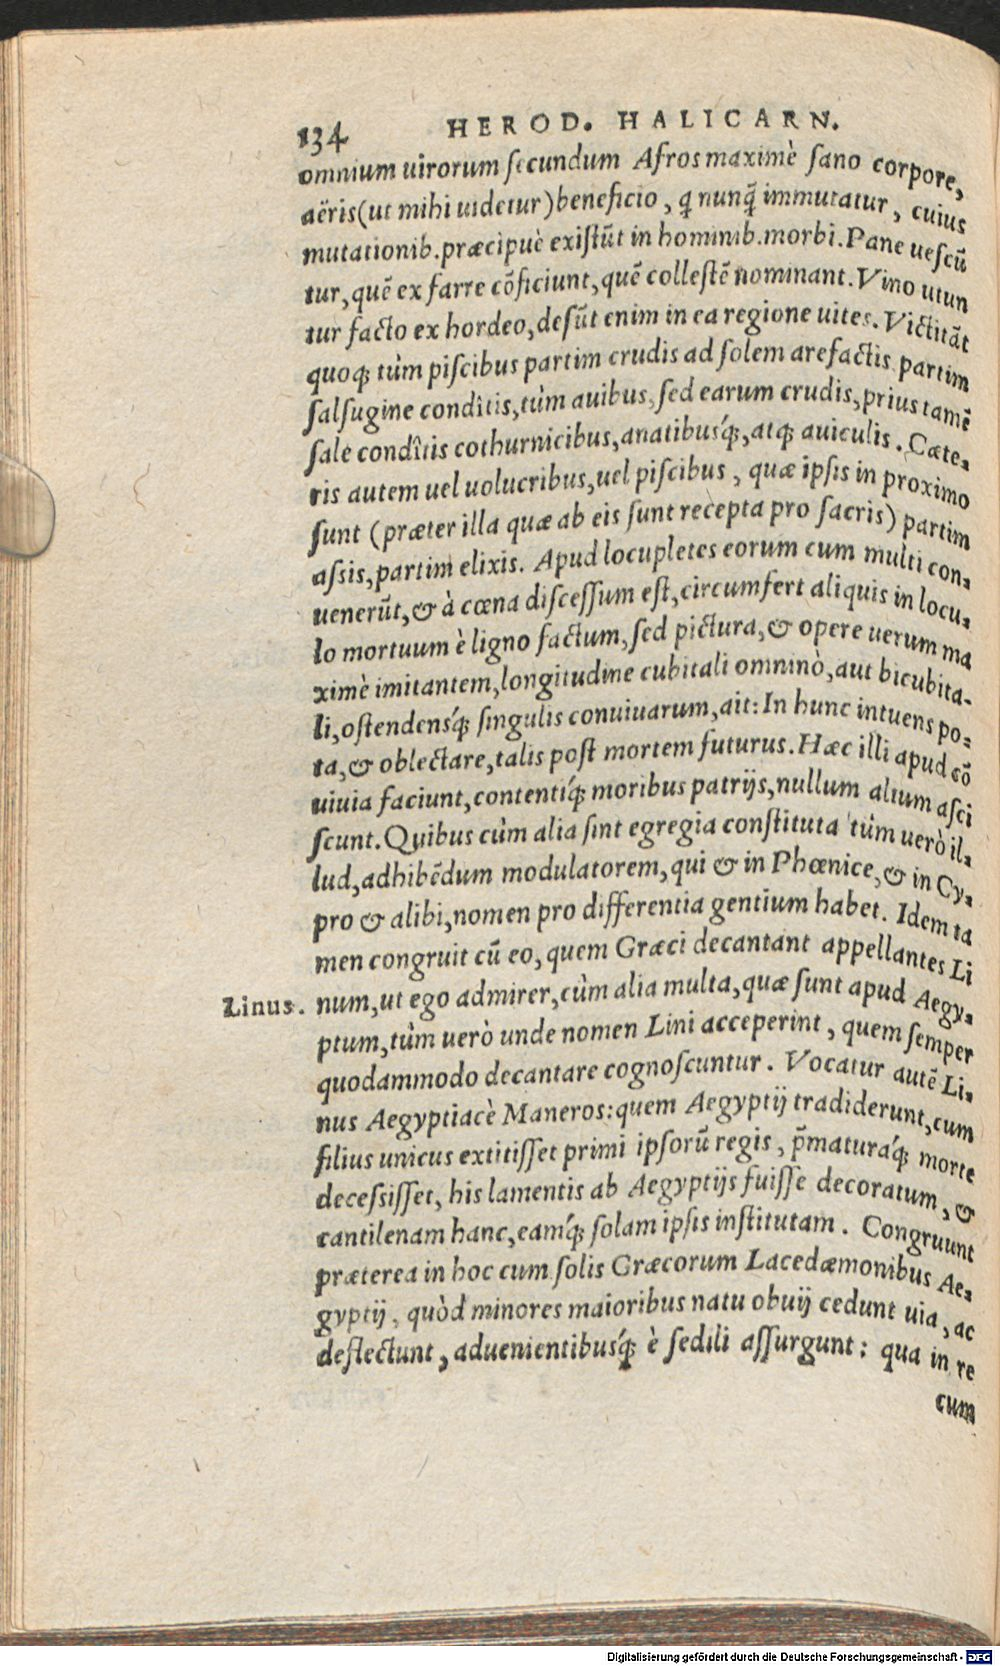 134 HEROD. HALICARN.
omnium uirorum secundum Afros maximè sano corpore,
aëris (ut mihi uidetur) beneficio, q̃ nunq̃ immutatur, cuius
mutationib. præcipuè existũt in hominib. morbi. Pane uescũ
tur, quẽ ex farre cõficiunt, quẽ collestẽ nominant. Vino utun
tur facto ex hordeo, desũt enim in ea regione uites. Victitãt
quoq; tùm piscibus partim crudis ad solem arefactis partim
salsugine condîtis, tùm auibus, sed earum crudis, prius tamẽ
sale condîtis cothurnicibus, anatibusq́;, atq; auiculis. Cæte-
ris autem uel uolucribus, uel piscibus, quæ ipsis in proximo
sunt (præter illa quæ ab eis sunt recepta pro sacris) partim
assis, partim elixis. Apud locupletes eorum cum multi con-
uenerũt, & à cœna discessum est, circumfert aliquis in locu-
lo mortuum è ligno factum, sed pictura, & opere uerum ma
ximè imitantem, longitudine cubitali omninò, aut bicubita-
li, ostendensq́; singulis conuiuarum, ait: In hunc intuens po-
ta, & oblectare, talis post mortem futurus. Hæc illi apud cõ
uiuia faciunt, contentiq́; moribus patrijs, nullum alium asci
scunt. Quibus cùm alia sint egregia constituta tùm uerò il-
lud, adhibẽdum modulatorem, qui & in Phœnice, & in Cy-
pro & alibi, nomen pro differentia gentium habet. Idem ta
men congruit cũ eo, quem Græci decantant appellantes Li
Linus. num, ut ego admirer, cùm alia multa, quæ sunt apud Aegy-
ptum, tùm uerò unde nomen Lini acceperint, quem semper
quodammodo decantare cognoscuntur. Vocatur autẽ Li-
nus Aegyptiacè Maneros: quem Aegyptij tradiderunt, cum
filius unicus extitisset primi ipsorũ regis, p̃maturaq́; morte
decessisset, his lamentis ab Aegyptijs fuisse decoratum, &
cantilenam hanc, eamq́; solam ipsis institutam. Congruunt
præterea in hoc cum solis Græcorum Lacedæmonibus Ae-
gyptij, quòd minores maioribus natu obuij cedunt uia, ac
deflectunt, aduenientibusq́; è sedili assurgunt: qua in re
cum
Digitalisierung gefördert durch die Deutsche Forschungsgemeinschaft - DFG